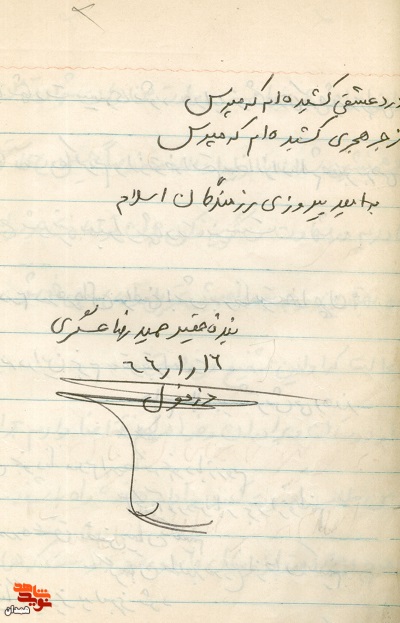 درد عشقی کشیده ام که مپرس
زهر هجری کشیده ام که مپرس
به امید پیروزی رزمندگان اسلام
بنده حقیر حمید رضا عسگری
۶۶/۱/۱۶
دزفول
نوید شاهد
همدان